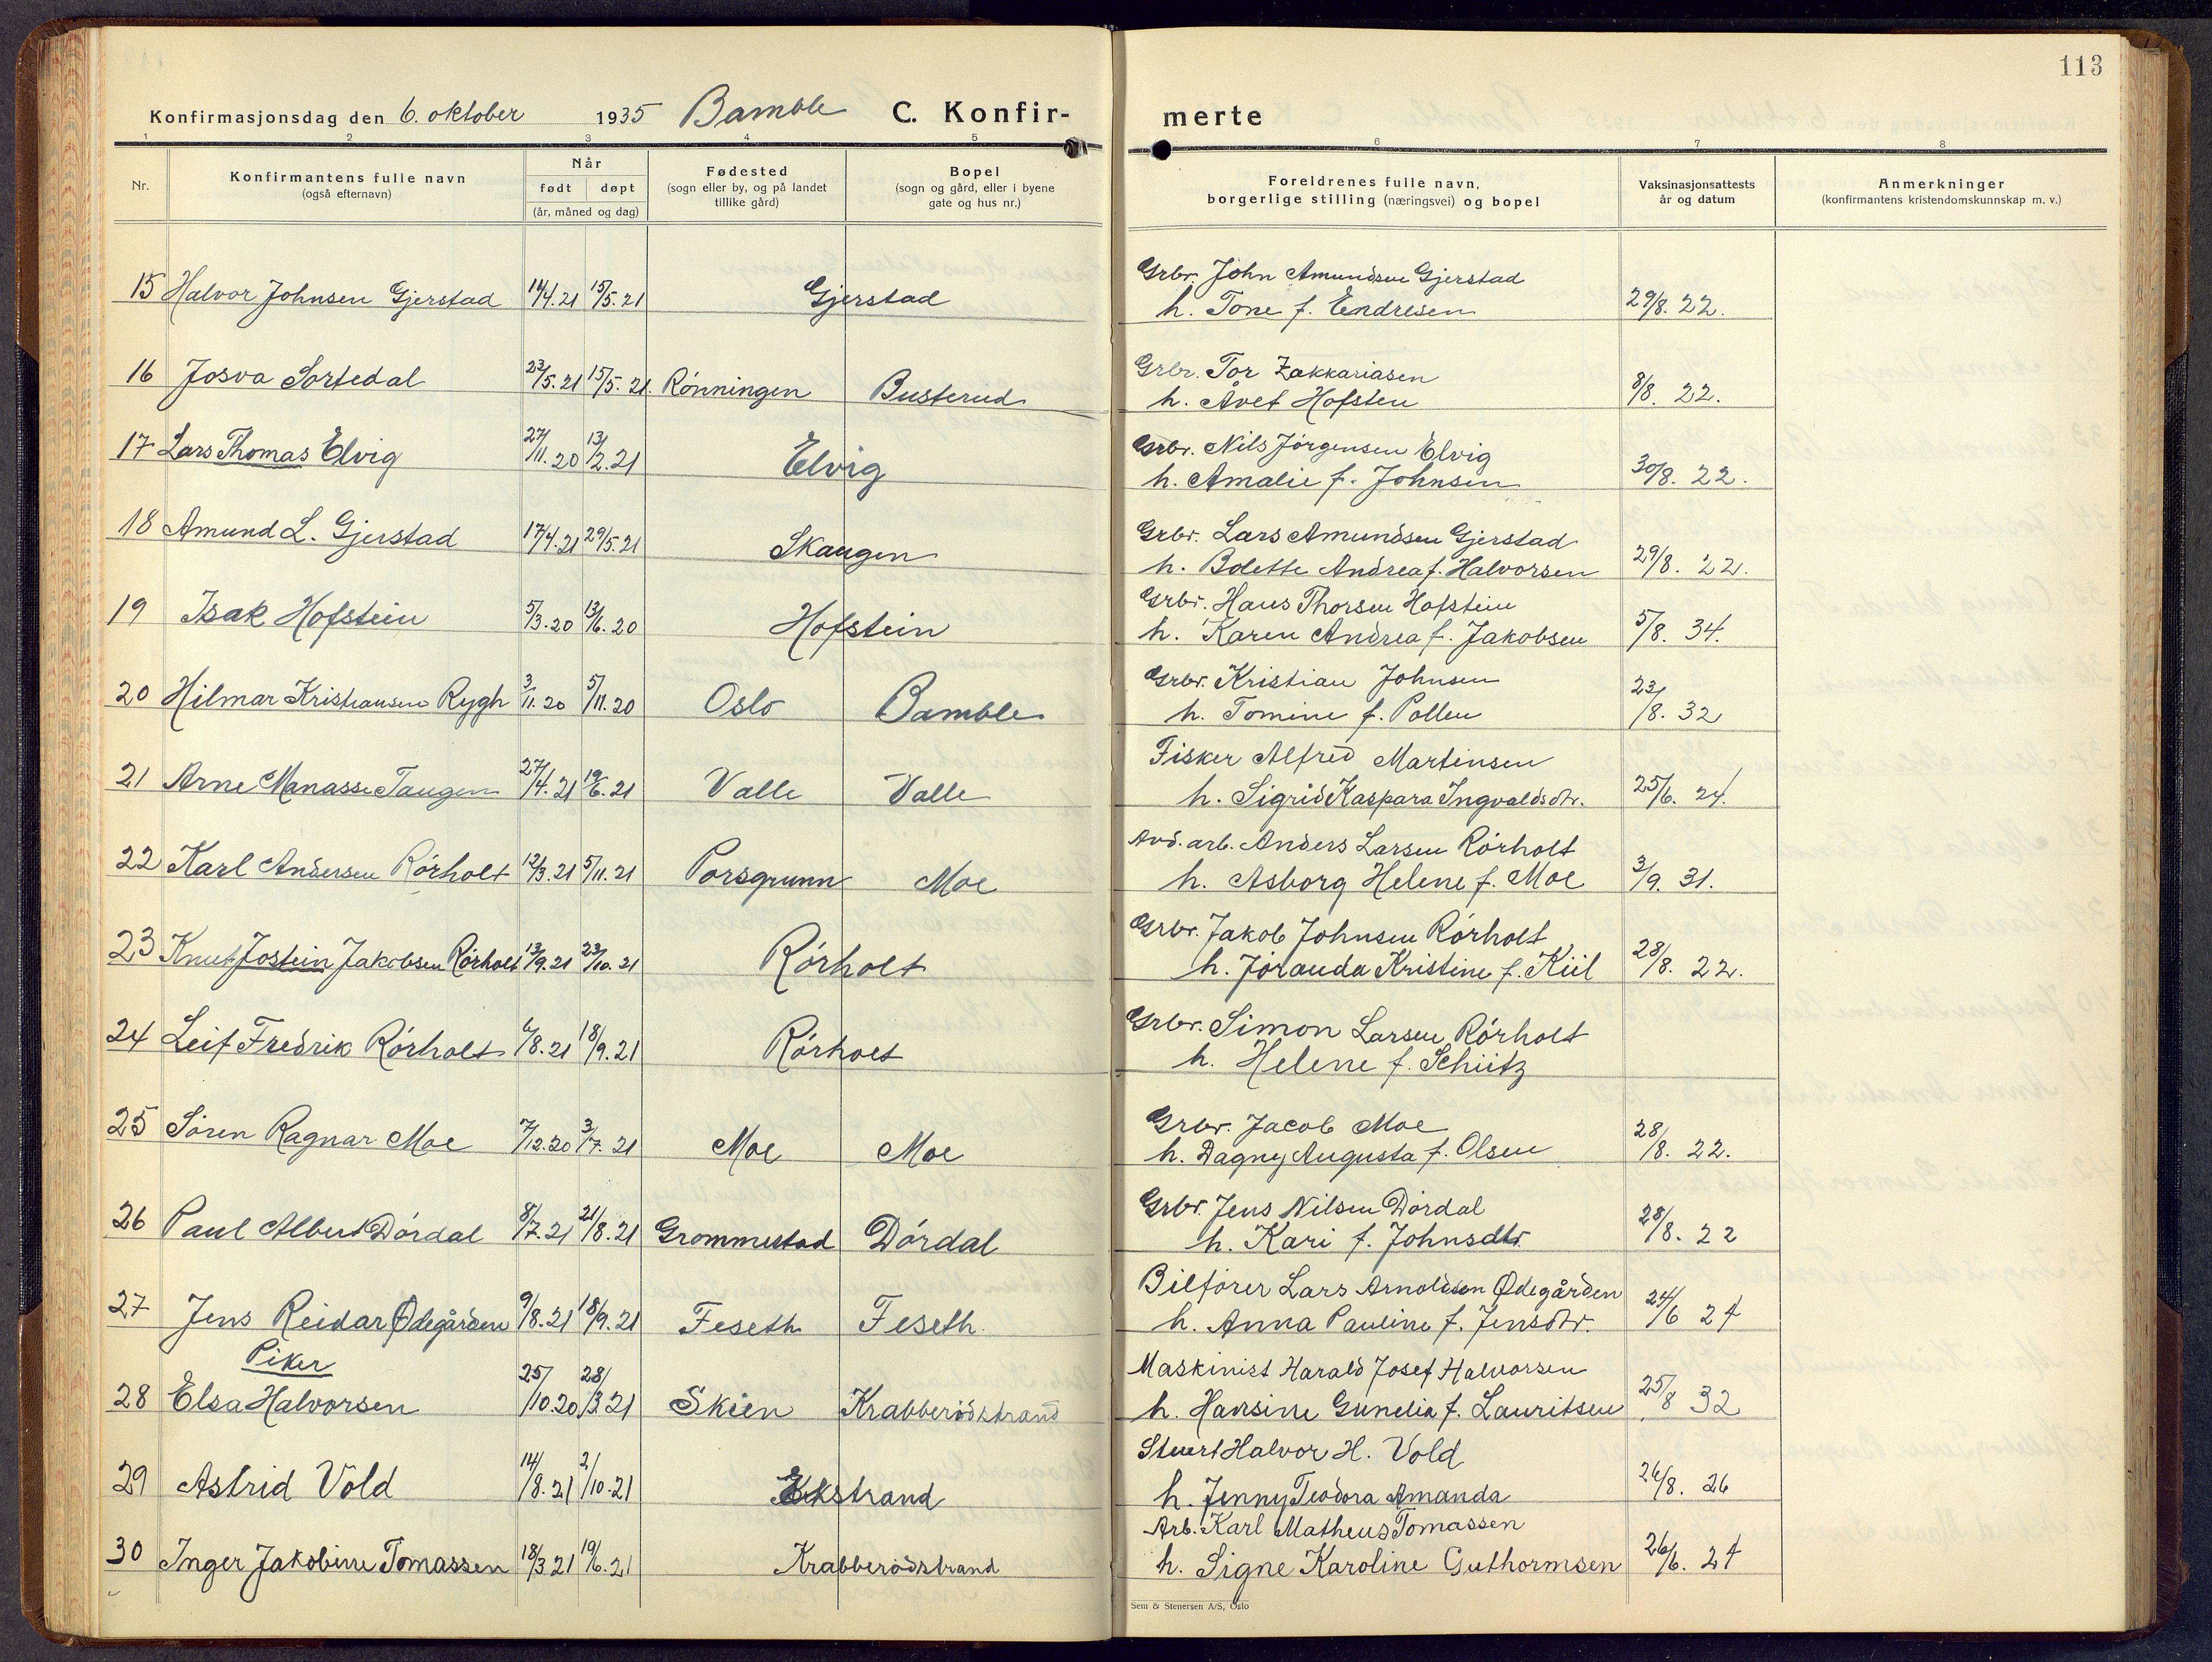 113
Konfirmasjonsdag den 6. oktober 1935 Bamble C. Konfir-
merte
1 2 3 4 5 6 7 8
Nr. Konfirmantens fulle navn (også efternavn) Når født døpt (år, måned og dag) Fødested (sogn eller by, og på landet tillike gård) Bopel (sogn og gård, eller i byene gate og hus nr.) Foreldrenes fulle navn, borgerlige stilling (næringsvei) og bopel Vaksinasjonsattests år og datum Anmerkninger (konfirmantens kristendomskunnskap m. v.)
15 Halvor Johnsen Gjerstad 14/4.21 15/5.21 Gjerstad Grbr. John Amundsen Gjerstad
h. Tone f. Endresen 29/8. 22.
16 Josva Sortedal 23/5.21 15/5. 21. Rønningen Busterud Grbr. Tor Zakkariasen
h. Åvet Hofsten 8/8. 22.
17 Lars Thomas Elvig 27/11.20 13/2.21 Elvig Grbr. Nils Jørgensen Elvig
h. Amalie f. Johnsen 30/8. 22.
18 Amund L. Gjerstad 17/4.21 29/5.21 Skaugen Grbr. Lars Amundsen Gjerstad
h. Bolette Andrea f. Halvorsen 29/8. 22.
19 Isak Hofstein 5/3.20 13/6.20 Hofstein Grbr. Hans Thorsen Hofstein
h. Karen Andrea f. Jakobsen 5/8. 34.
20 Hilmar Kristiansen Rygh 3/11.20 5/11.20 Oslo Bamble Grbr. Kristian Johnsen
h. Tomine f. Pollen 23/8. 32
21 Arne Manasse Taugen 27/4.21 19/6.21 Valle Valle Fisker Alfred Martinsen
h. Sigrid Kaspara Ingvaldsdtr. 25/6. 24.
22 Karl Andersen Rørholt 12/3.21 5/11.21 Porsgrunn Moe Avd. arb. Anders Larsen Rørholt
h. Asborg Helene f. Moe 3/9. 31.
23 Knut Jostein Jakobsen Rørholt 13/9.21 23/10.21 Rørholt Grbr. Jakob Johnsen Rørholt
h. Jøranda Kristine f. Kiil 28/8. 22.
24 Leif Fredrik Rørholt 6/8.21 18/9.21 Rørholt Grbr. Simon Larsen Rørholt
h. Helene f. Schütz
25 Søren Ragnar Moe 7/12.20 3/7. 21 Moe Moe Grbr. Jacob Moe
h. Dagny Augusta f. Olsen 28/8. 22.
26 Paul Albert Dørdal 8/7.21 21/8.21 Grommestad Dørdal Grbr. Jens Nilsen Dørdal
h. Kari f. Johnsdtr. 28/8. 22
27 Jens Reidar Ødegården 9/8.21 18/9.21 Feseth Feseth. Bilfører Lars Arnoldsen Ødegården
h. Anna Pauline f. Jensdtr. 24/6 24
Piker
28 Elsa Halvorsen 25/10.20 28/3.21 Skien Krabberødstrand Maskinist Harald Josef Halvorsen
h. Hansine Gunelia f. Lauritsen 25/8 32
29 Astrid Vold 14/8.21 2/10.21 Ekstrand Stuert Halvor H. Vold
h. Jenny Teodora Amanda 26/8. 26
30 Inger Jakobine Tomassen 18/3 21 19/6.21 Krabberødstrand Arb. Karl Matheus Tomassen
h. Signe Karoline Guthormsen 26/6. 24
Sem & Stenersen A/S, Oslo